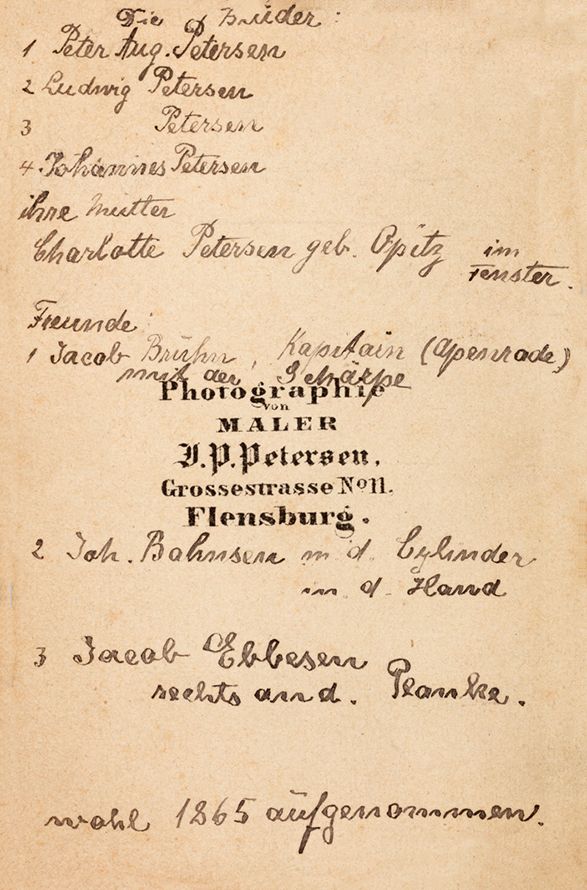 Die Brüder:
1 Peter Aug. Petersen
2 Ludwig Petersen
3 Petersen
4 Johannes Petersen
ihre Mutter
Charlotte Petersen geb. Opitz im
Fenster.
Freunde
1 Jacob Brühn, Kapitain (Apenrade)
mit der Schärpe
Photographie
von
MALER
J. P. Petersen,
Grossestrasse No 11.
Flensburg.
2 Joh. Bahnsen m. d. Cylinder
in d. Hand
3 Jacob Ebbesen
rechts an d. Planke.
wohl 1865 aufgenommen.